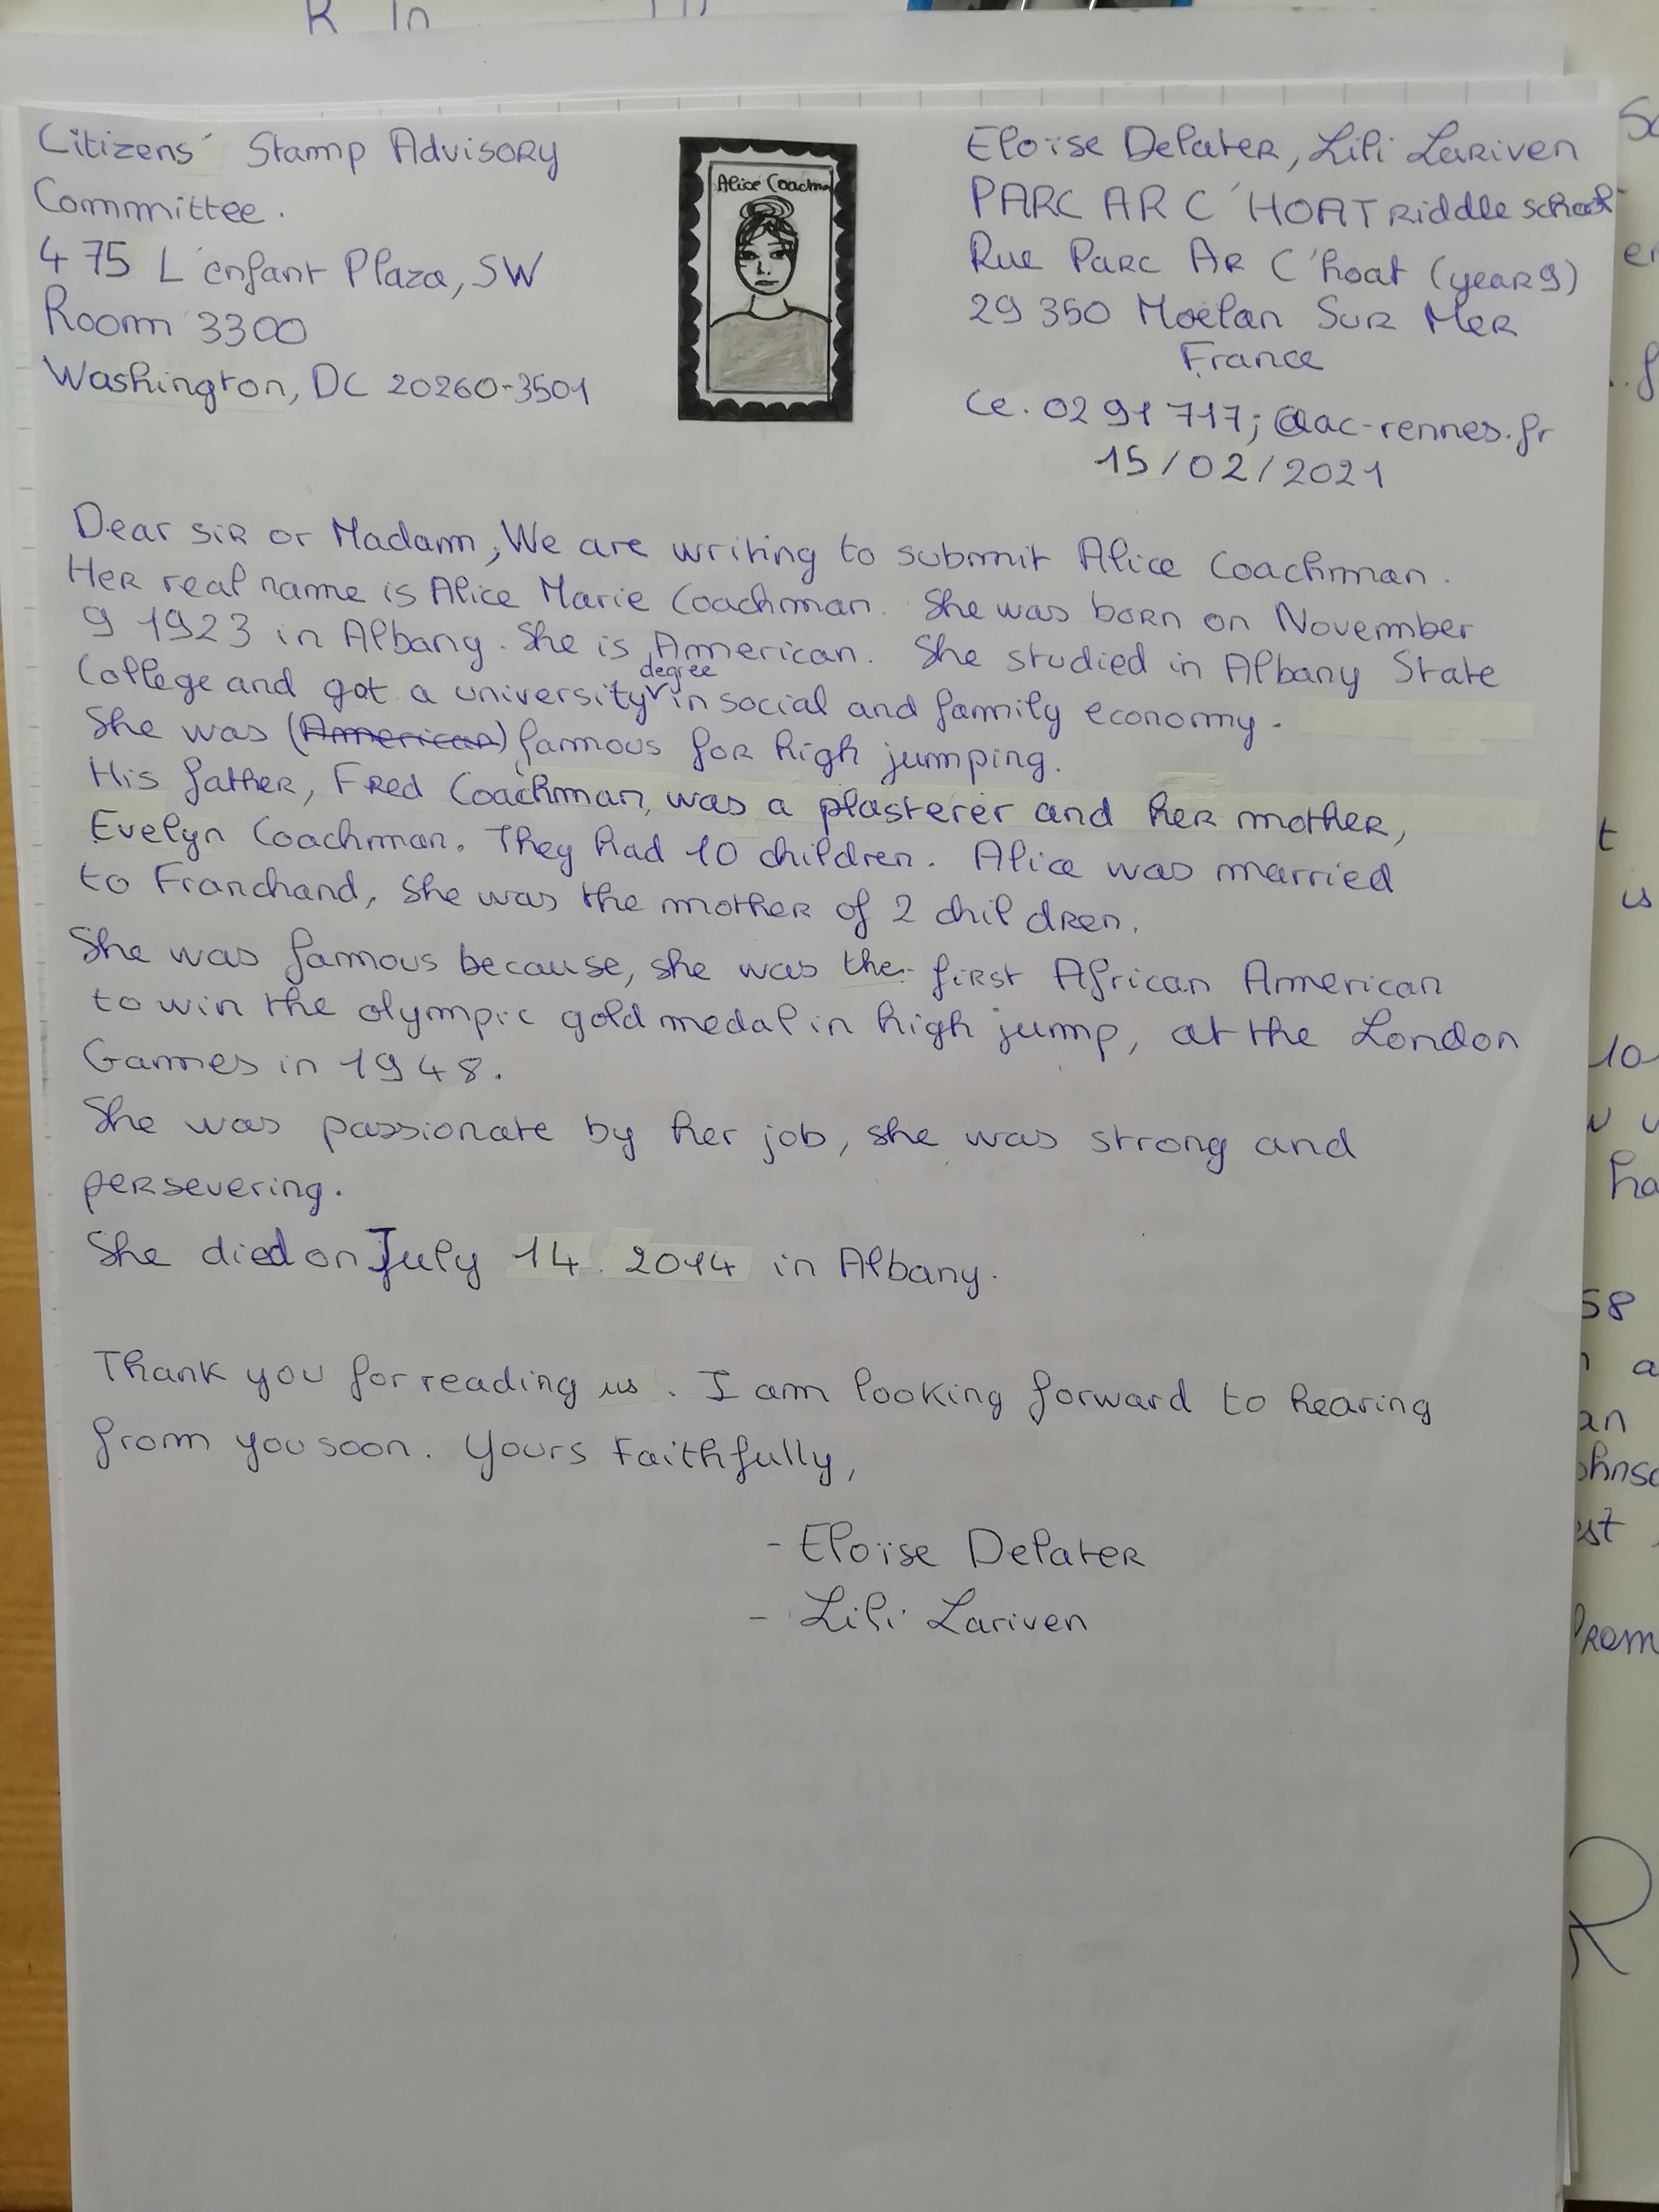 Citizens' Stamp Advisory
Committee.
475 L'enfant Plaza, SW
Room 3300
Washington, DC 20260-3501
Alice Coachma
Eloïse Delater, Lili Lariven
PARC AR C'HOAT
Rue Parc Ar C'hoat (year 9)
29350 Moëlan Sur Mer
France
ce.0291717; @ac-rennes.fr
15/02/2021
Dear sir or Madam, We are writing to submit Alice Coachman.
Her real name is Alice Marie Coachman. She was born on November
9 1923 in Albany. She is American. She studied in Albany State
College and got a university degree in social and family economy.
She was (American) famous for high jumping.
His father, Fred Coachman, was a plasterer and her mother,
Evelyn Coachman. They had 10 children. Alice was married
to Franchand, she was the mother of 2 children.
She was famous because, she was the first African American
to win the olympic gold medal in high jump, at the London
Games in 1948.
She was passionate by her job, she was strong and
persevering.
She died on July 14 2014 in Albany.
Thank you for reading us. I am looking forward to hearing
from you soon. Yours Faithfully,
- Eloïse Delater
- Lili Lariven